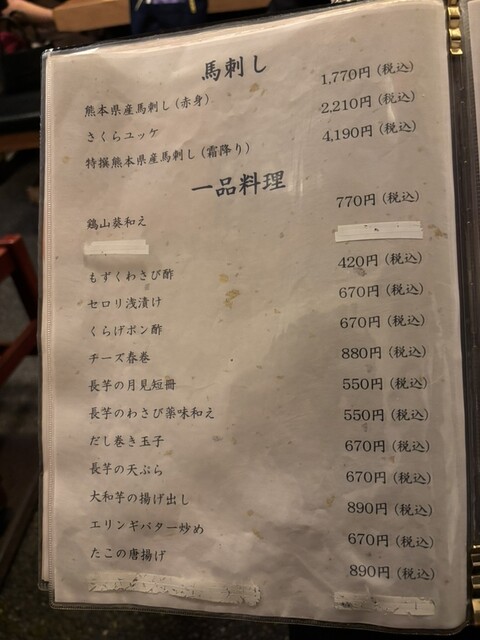 馬刺し
熊本県産馬刺し(赤身) 1,770円(税込)
さくらユッケ 2,210円(税込)
特撰熊本県産馬刺し(霜降り) 4,190円(税込)
一品料理
鶏山葵和え 770円(税込)
もずくわさび酢 420円(税込)
セロリ浅漬け 670円(税込)
くらげポン酢 670円(税込)
チーズ春巻 880円(税込)
長芋の月見短冊 550円(税込)
長芋のわさび薬味和え 550円(税込)
だし巻き玉子 670円(税込)
長芋の天ぷら 670円(税込)
大和芋の揚げ出し 890円(税込)
エリンギバター炒め 670円(税込)
たこの唐揚げ 890円(税込)